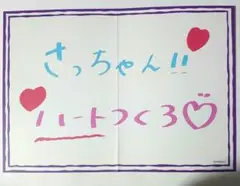 さっちゃん!!
ハートつくろ♡